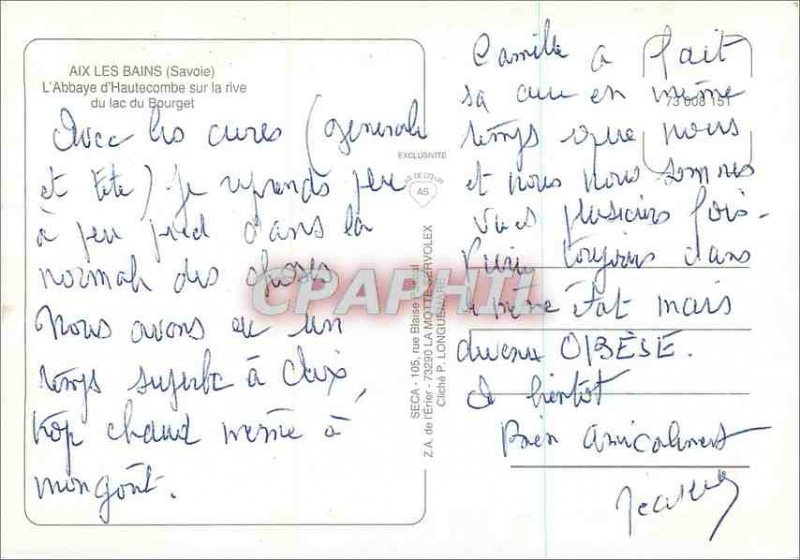 AIX LES BAINS (Savoie)
L'Abbaye d'Hautecombe sur la rive
du lac du Bourget
Avec les cures (générale
et tête) je reprends peu
à peu pied dans la
normale des choses
Nous avons eu un
temps superbe à Aix,
trop chaud même à
mon goût.
EXCLUSIVITE
AS DE CŒUR
AS
SECA - 105, rue Blaise Pascal
Z.A. de l'Erier - 73290 LA MOTTE SERVOLEX
Cliché P. LONGUENARE
CPAPHIL
Camille a fait
sa cure en même
73 608 151
temps que nous
et nous nous sommes
vus plusieurs fois -
toujours dans
le même état mais
devenu OBÈSE.
A bientôt
Bien amicalement